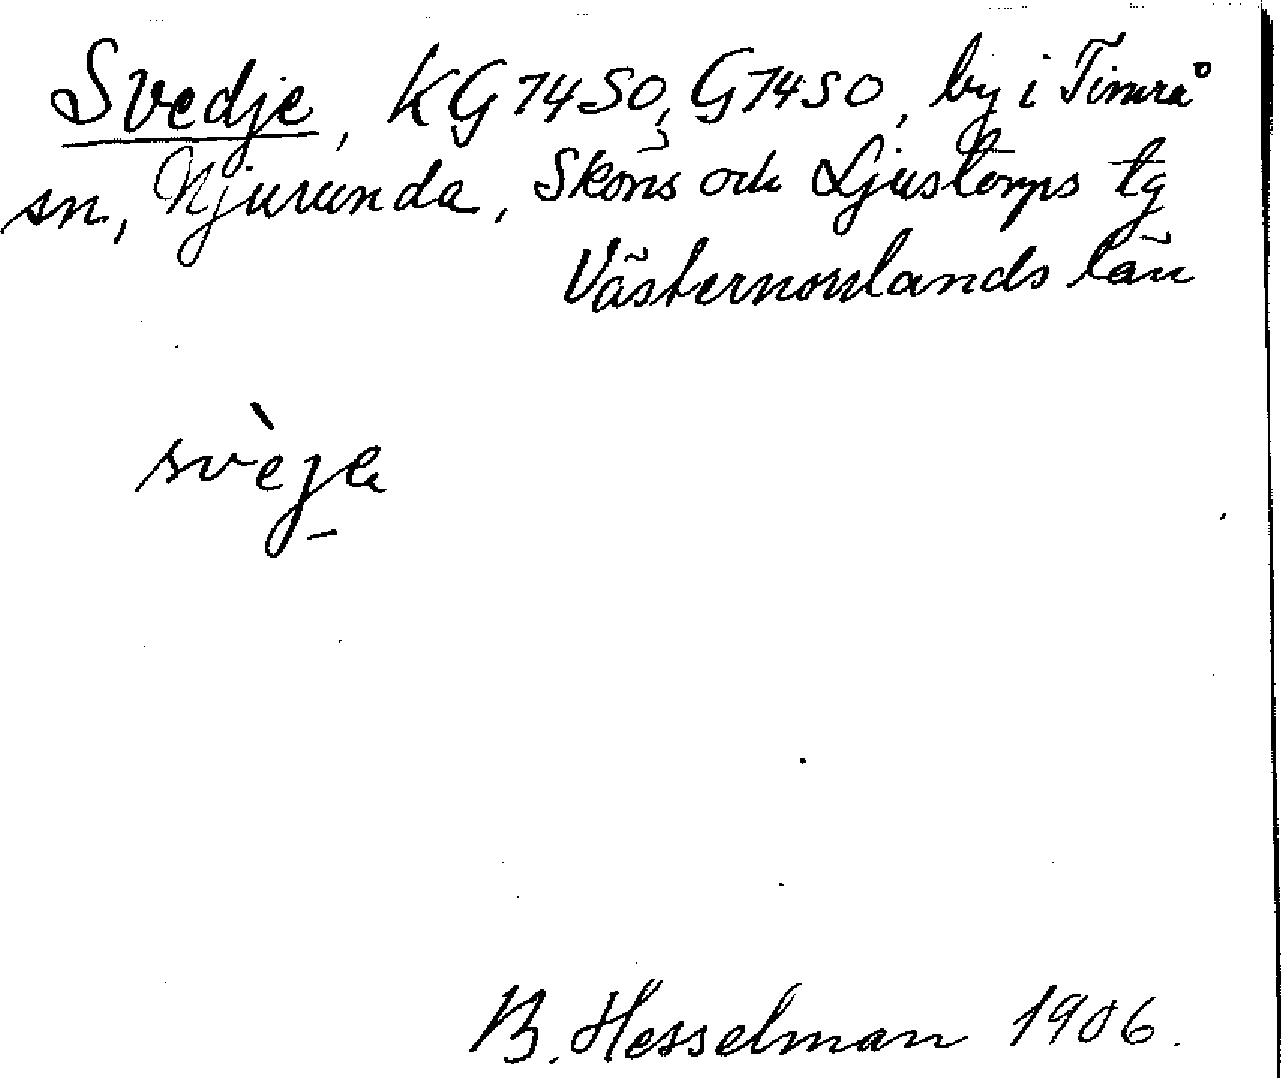 Svedje, KG 74 SO, G 74 SO, by i Timrå
sn, Njurunda, Sköns och Ljustorps tg
Västernorrlands län
svèje
B. Hesselman 1906.